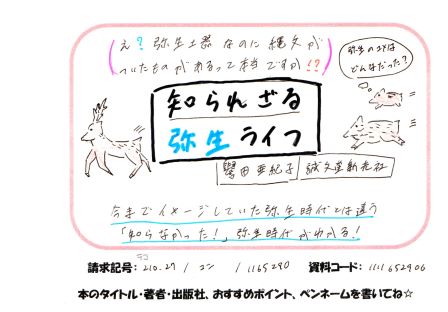 え？弥生土器なのに縄文が
ついたものがあるって本当ですか!?
弥生のブタは
どんなだった？
知られざる
弥生ライフ
譽田亜紀子 誠文堂新光社
今までイメージしていた弥生時代とは違う
「知らなかった！」弥生時代がわかる！
請求記号: 210.27 / コン / 1165290 資料コード: 1111652906
本のタイトル・著者・出版社、おすすめポイント、ペンネームを書いてね☆